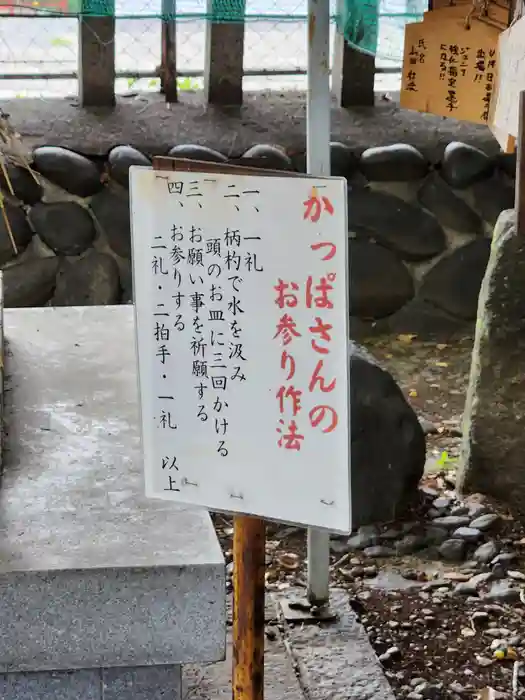 かっぱさんの
お参り作法
一、一礼
二、柄杓で水を汲み
頭のお皿に三回かける
三、お願い事を祈願する
四、お参りする
二礼・二拍手・一礼　以上
氏名